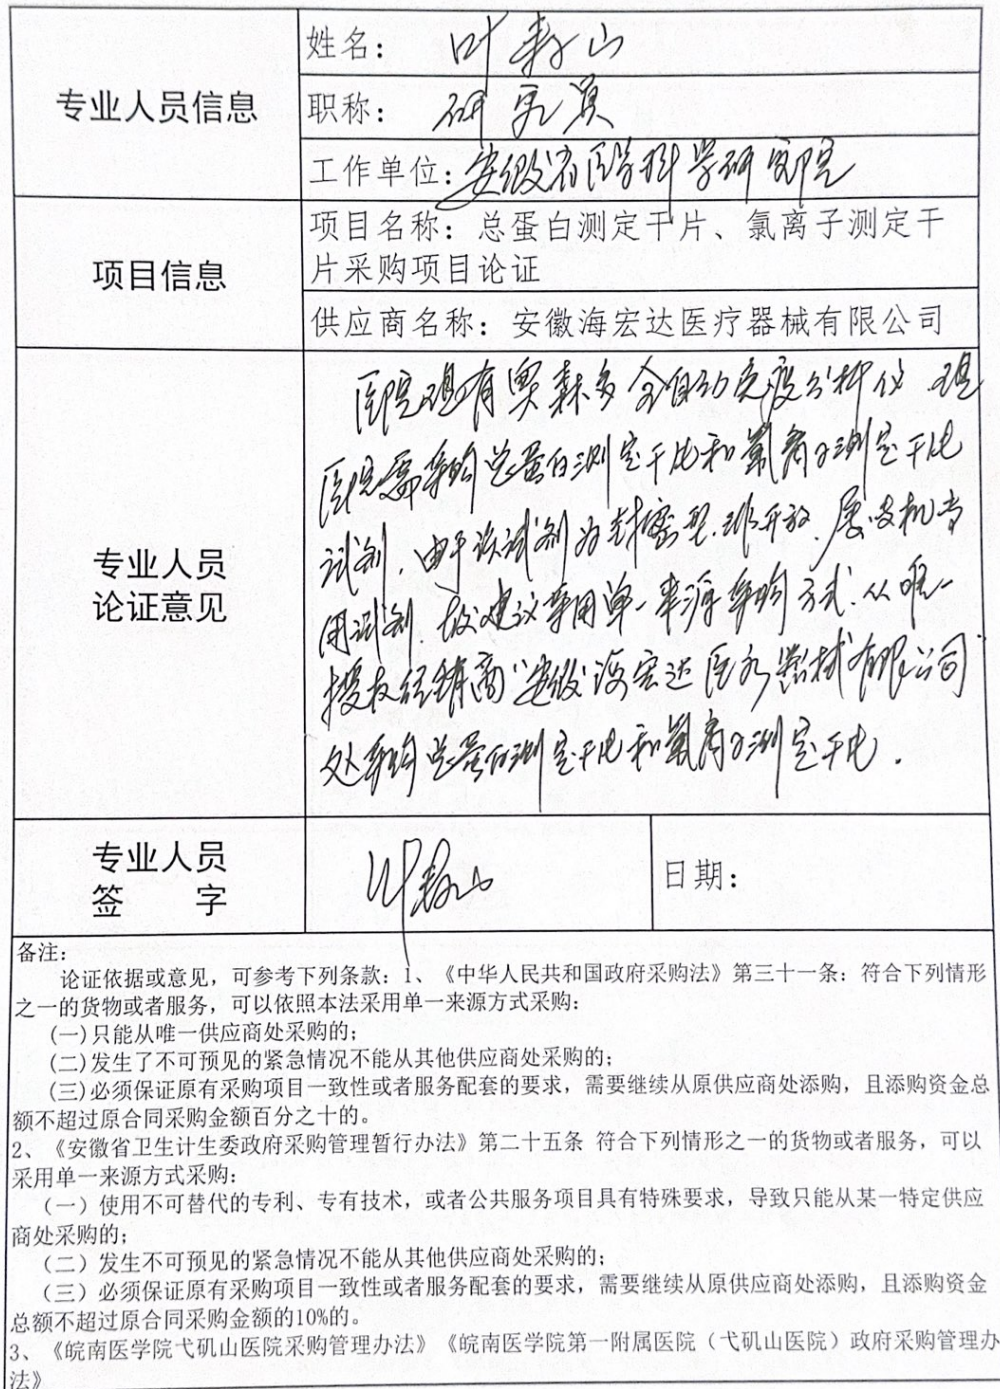 专业人员信息
姓名：叶寿山
职称：研究员
工作单位：安徽省医学科学研究院
项目信息
项目名称：总蛋白测定干片、氯离子测定干
片采购项目论证
供应商名称：安徽海宏达医疗器械有限公司
专业人员
论证意见
医院现有奥森多全自动免疫分析仪 现
医院需采购总蛋白测定干片和氯离子测定干片
试剂，由于该试剂为封密型，非开放，属设机专
用试剂，故建议采用单一来源采购方式，从唯一
授权经销商“安徽海宏达医疗器械有限公司”
处采购总蛋白测定干片和氯离子测定干片。
专业人员
签　　字
叶寿山
日期：
备注：
论证依据或意见，可参考下列条款：1、《中华人民共和国政府采购法》第三十一条：符合下列情形
之一的货物或者服务，可以依照本法采用单一来源方式采购：
(一)只能从唯一供应商处采购的；
(二)发生了不可预见的紧急情况不能从其他供应商处采购的；
(三)必须保证原有采购项目一致性或者服务配套的要求，需要继续从原供应商处添购，且添购资金总
额不超过原合同采购金额百分之十的。
2、《安徽省卫生计生委政府采购管理暂行办法》第二十五条 符合下列情形之一的货物或者服务，可以
采用单一来源方式采购：
（一）使用不可替代的专利、专有技术，或者公共服务项目具有特殊要求，导致只能从某一特定供应
商处采购的；
（二）发生不可预见的紧急情况不能从其他供应商处采购的；
（三）必须保证原有采购项目一致性或者服务配套的要求，需要继续从原供应商处添购，且添购资金
总额不超过原合同采购金额的10%的。
3、《皖南医学院弋矶山医院采购管理办法》《皖南医学院第一附属医院（弋矶山医院）政府采购管理办
法》